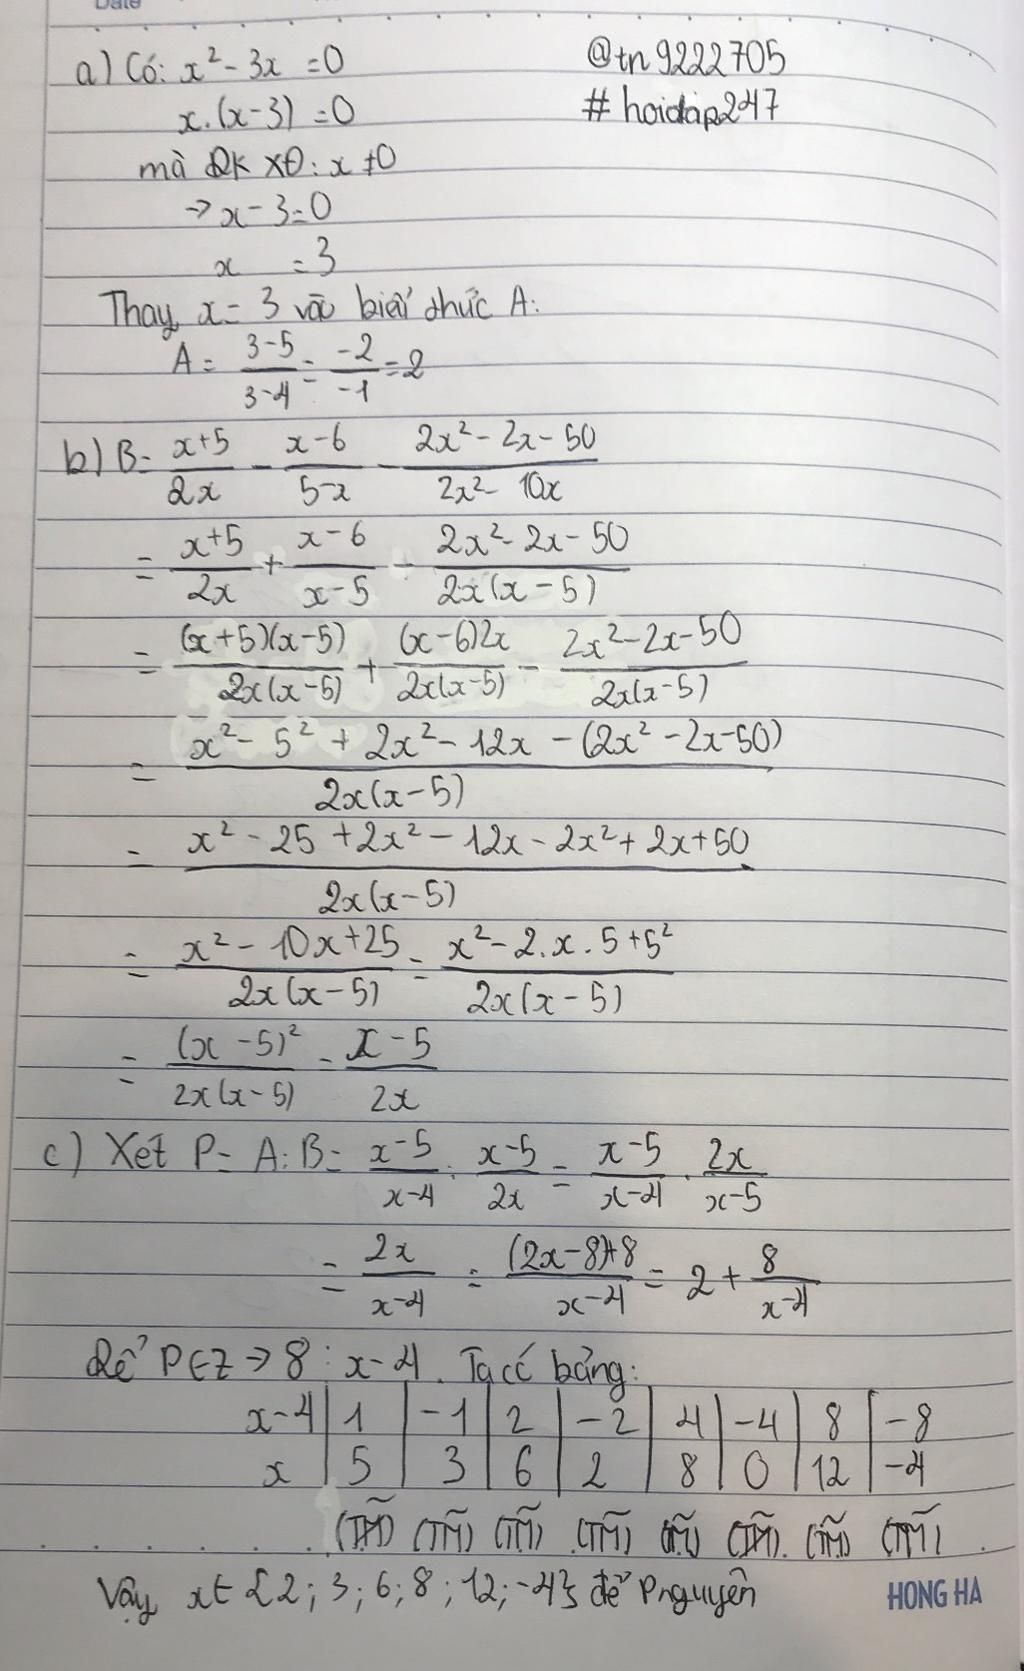 Date
a) Có: x² - 3x = 0
@tn9222705
x.(x-3) = 0
#hoidap247
mà ĐKXĐ: x ≠ 0
→ x - 3 = 0
x = 3
Thay x = 3 vào biểu thức A:
A = (3-5)/(3-4) = (-2)/(-1) = 2
b) B = (x+5)/(2x) - (x-6)/(5-x) - (2x² - 2x - 50)/(2x² - 10x)
= (x+5)/(2x) + (x-6)/(x-5) - (2x² - 2x - 50)/(2x(x-5))
= ((x+5)(x-5))/(2x(x-5)) + ((x-6)2x)/(2x(x-5)) - (2x² - 2x - 50)/(2x(x-5))
= (x² - 5² + 2x² - 12x - (2x² - 2x - 50))/(2x(x-5))
= (x² - 25 + 2x² - 12x - 2x² + 2x + 50)/(2x(x-5))
= (x² - 10x + 25)/(2x(x-5)) = (x² - 2.x.5 + 5²)/(2x(x-5))
= (x-5)²/(2x(x-5)) = (x-5)/(2x)
c) Xét P = A : B = (x-5)/(x-4) : (x-5)/(2x) = (x-5)/(x-4) . (2x)/(x-5)
= (2x)/(x-4) = ((2x-8)+8)/(x-4) = 2 + 8/(x-4)
Để P ∈ Z → 8 ⋮ x-4. Ta có bảng:
x-4 | 1 | -1 | 2 | -2 | 4 | -4 | 8 | -8
x | 5 | 3 | 6 | 2 | 8 | 0 | 12 | -4
(TM) (TM) (TM) (TM) (TM)
Vậy x ∈ {2; 3; 6; 8; 12; -4} để P nguyên
HONG HA